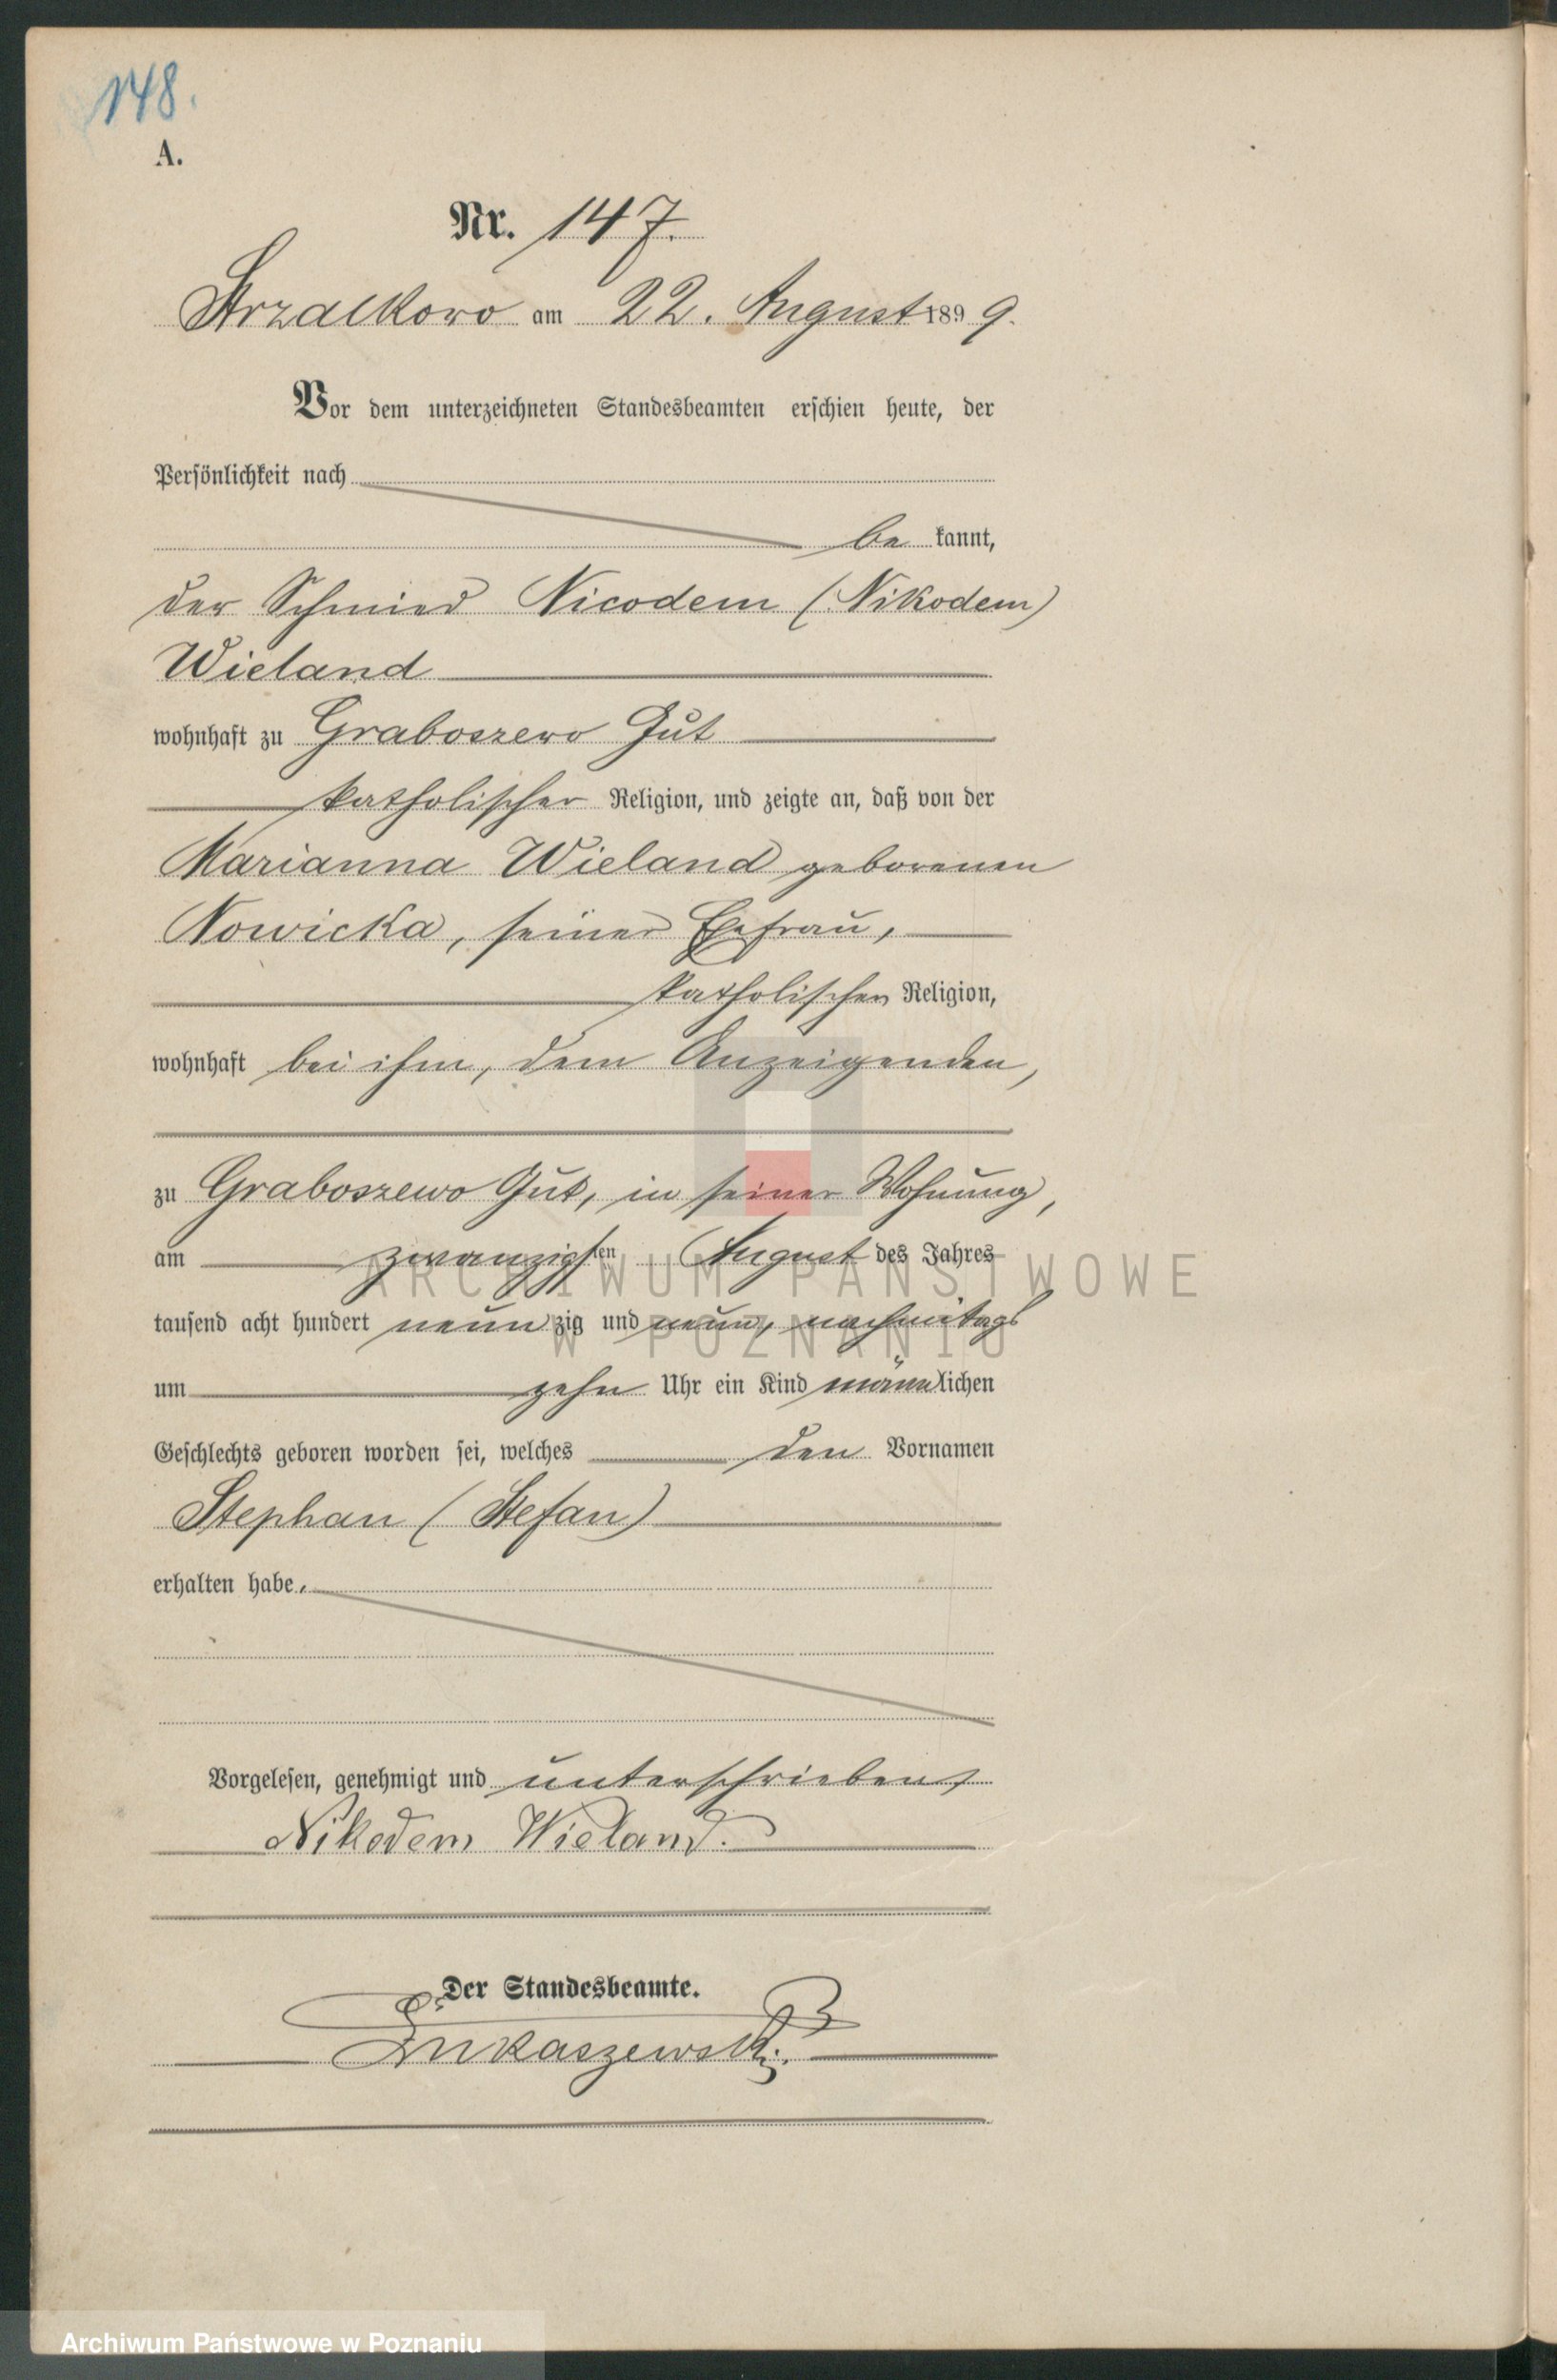 148.
A.
Nr. 147.
Strzalkowo am 22. August 1899.
Vor dem unterzeichneten Standesbeamten erschien heute, der
Persönlichkeit nach
be kannt,
der Schmied Nicodem (Nikodem)
Wieland
wohnhaft zu Graboszewo Gut
katholischer Religion, und zeigte an, daß von der
Marianna Wieland geborenen
Nowicka, seiner Ehefrau,
katholischer Religion,
wohnhaft bei ihm, dem Anzeigenden,
zu Graboszewo Gut, in seiner Wohnung,
am zwanzigsten August des Jahres
ARCHIWUM PAŃSTWOWE
tausend acht hundert neun zig und neun, nachmittags
W POZNANIU
um zehn Uhr ein Kind männlichen
Geschlechts geboren worden sei, welches den Vornamen
Stephan (Stefan)
erhalten habe.
Vorgelesen, genehmigt und unterschrieben,
Nikodem Wieland.
Der Standesbeamte.
Łukaszewski.
Archiwum Państwowe w Poznaniu